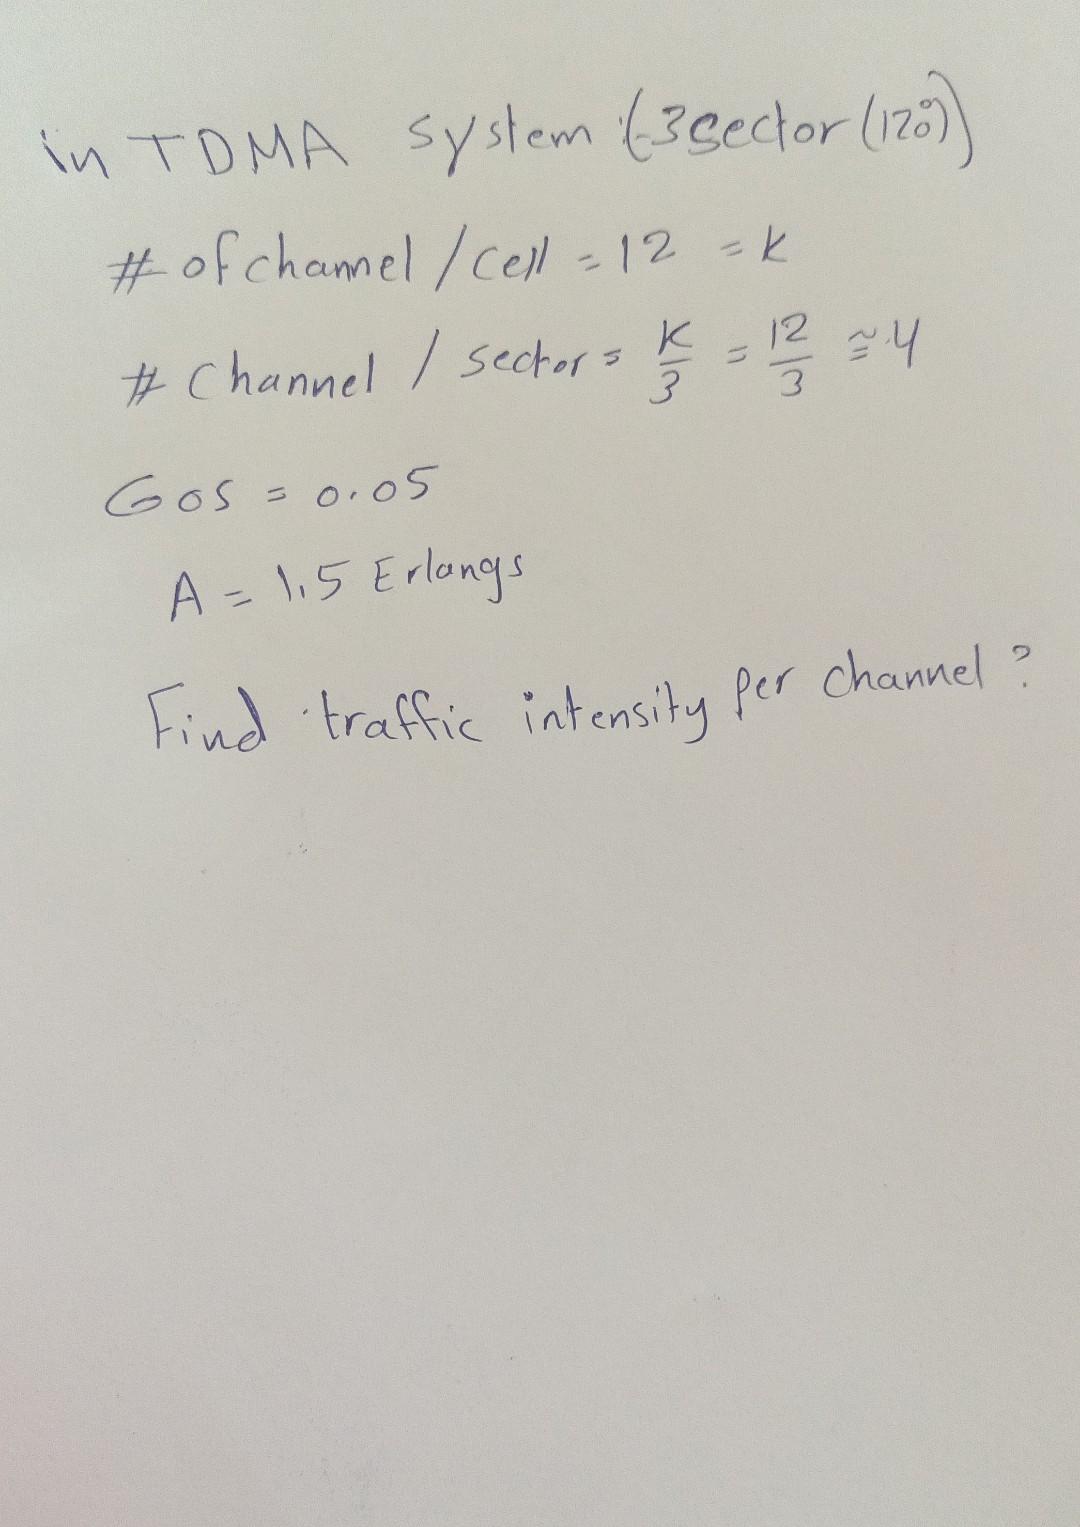 in TDMA system (3 sector (120°))
# of channel / cell = 12 = K
# Channel / sector = K/3 = 12/3 ≅ 4
GOS = 0.05
A = 1.5 Erlangs
Find traffic intensity per channel?